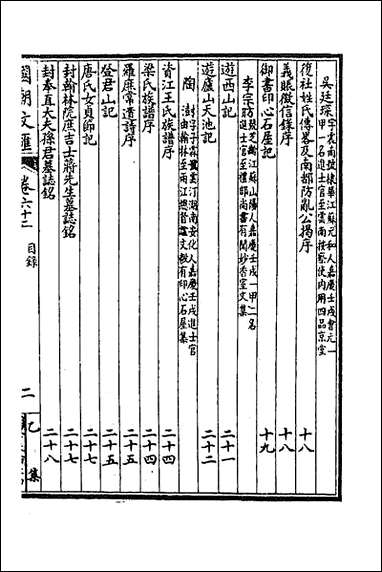 吳廷琛 字 南號棣華江蘇元和人嘉慶壬戌會元一甲一名進士官至雲南按察使內用四品京堂
復社姓氏傳畧及南都防亂公揭序 十八
義賬徵信錄序 十八
御書印心石屋記 十九
李宗昉 芝齡江蘇山陽人嘉慶壬戌一甲二名進士官至禮部尚書有聞妙香室文集
遊西山記 二十一
遊廬山天池記 二十二
陶澍 字子霖號雲汀湖南安化人嘉慶壬戌進士官由翰林至兩江總督諡文毅有印心石屋集
資江王氏族譜序 二十四
梁氏族譜序 二十四
羅麋常遺詩序 二十五
登君山記 二十五
唐氏女貞節記 二十七
封翰林院庶吉士蔣先生墓誌銘 二十七
封奉直大夫孫君墓誌銘 二十八
國朝文匯 卷六十二 目錄 二 乙集